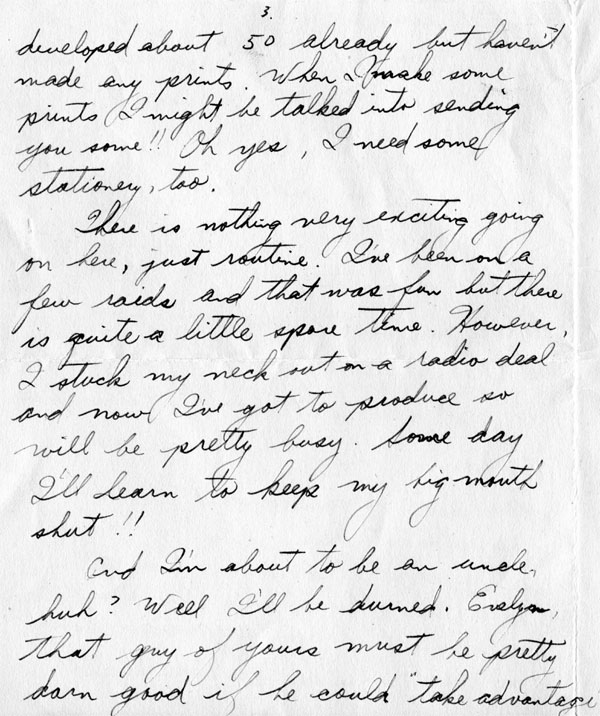 3.
developed about 50 already but haven't
made any prints. When I make some
prints I might be talked into sending
you some!! Oh yes, I need some
stationery, too.
There is nothing very exciting going
on here, just routine. I've been on a
few raids and that was fun but there
is quite a little spare time. However,
I stuck my neck out on a radio deal
and now I've got to produce so
will be pretty busy. Some day
I'll learn to keep my big mouth
shut!!
And I'm about to be an uncle,
huh? Well I'll be durned. Evelyn,
that guy of yours must be pretty
darn good if he could "take advantage